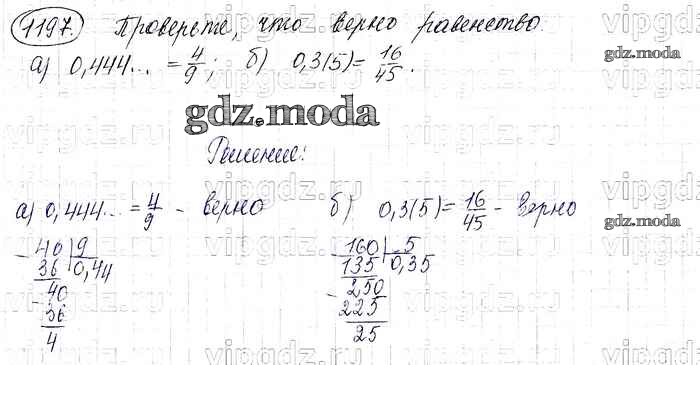 1197. Проверьте, что верно равенство.
а) 0,444... = 4/9; б) 0,3(5) = 16/45.
gdz.moda
gdz.moda
Решение:
а) 0,444... = 4/9 - верно б) 0,3(5) = 16/45 - верно
gdz.moda
40 | 9 160 | 5
36 0,44 135 0,35
40 250
36 225
4 25
vipgdz.ru